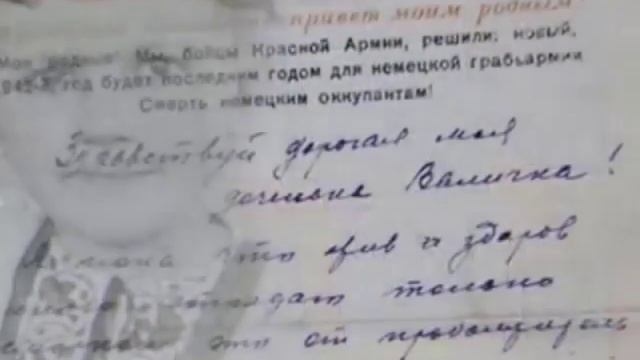 привет моим родным
Мои родные! Мы, бойцы Красной Армии, решили: новый,
1942-й, год будет последним годом для немецкой грабьармии
Смерть немецким оккупантам!
Здравствуй дорогая моя
доченька Валичка!
эта жив и здоров
только
это от